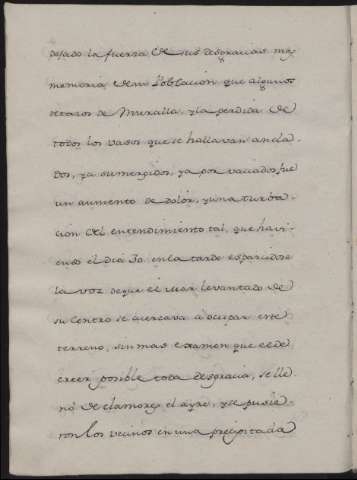 dejado la fuerza de sus desgracias mas
memoria de su Poblacion que algunos
retazos de Muralla, y la perdida de
todos los vasos que se hallavan ancla
dos, ya sumergidos, ya por varados, fue
un aumento de dolor, y una turba
cion del entendimiento tal, que havi
endo el dia 30 en la tarde esparcidose
la voz de que el Mar levantado de
su centro se acercava a ocupar este
terreno, sin mas examen que el de
creer posible toda desgracia, se lle
nò de clamores el ayre, y se pusie
ron los vecinos en una precipitada